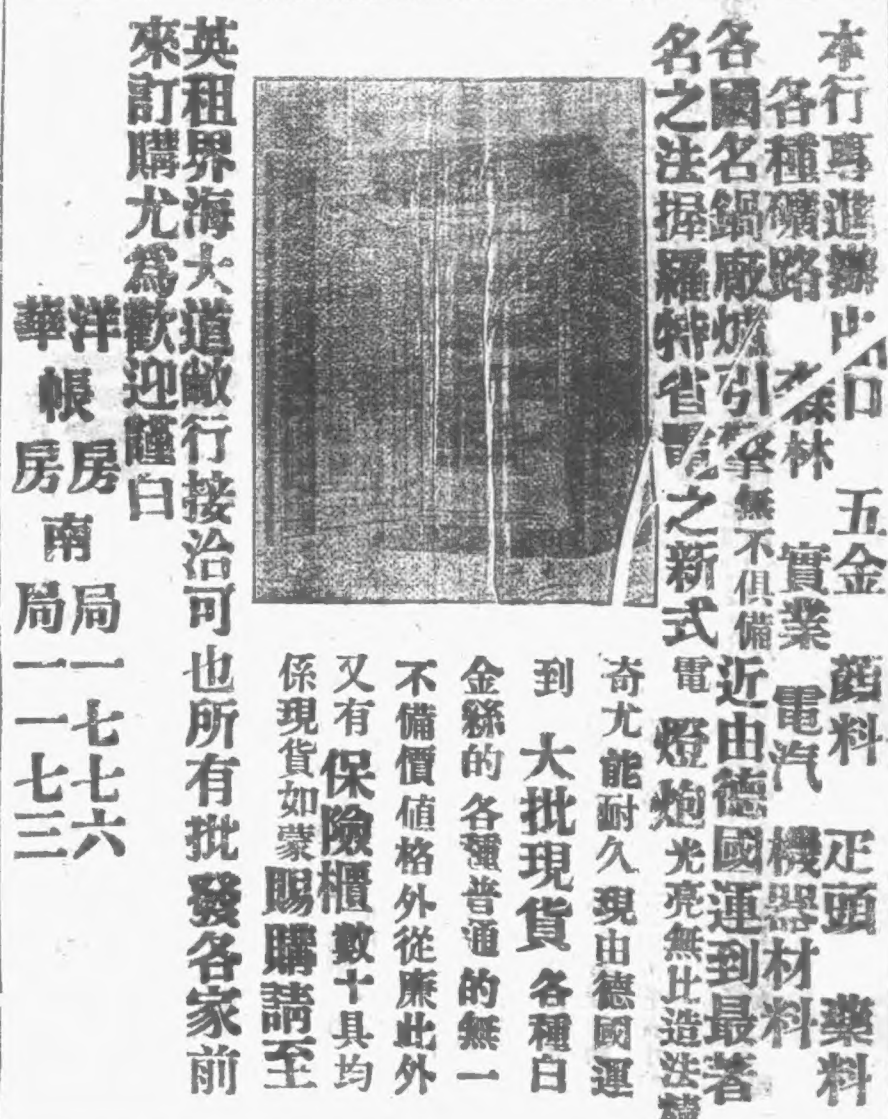 本行專進辦出口 五金 顏料 疋頭 藥料
各種礦路 森林 實業 電汽 機器材料
各國名鍋廠爐引擎無不俱備近由德國運到最著
名之法握羅特省電之新式電燈炮光亮無比造法
奇尤能耐久現由德國運
到大批現貨各種白
金絲的各種普通的無一
不備價值格外從廉此外
又有保險櫃數十具均
係現貨如蒙賜購請至
英租界海大道敝行接洽可也所有批發各家前
來訂購尤為歡迎謹白
洋帳房南局一七七六
華帳房南局一一七三